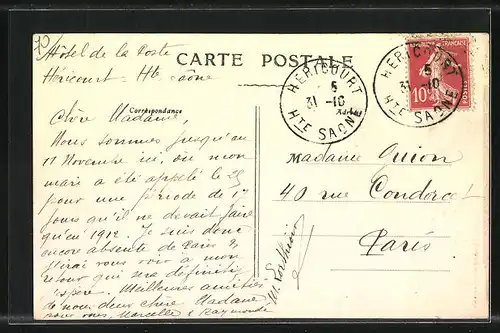 Hôtel de la Poste
Héricourt - Hte Saône
CARTE POSTALE
Correspondance
Chère Madame,
Nous sommes jusqu'au
11 Novembre ici, où mon
mari a été appelé le 25
pour une période de 17
jours qu'il ne devait faire
qu'en 1912. Je suis donc
encore absente de Paris &
j'irai vous voir à mon
retour qui sera définitif
j'espère. Meilleures amitiés
de nous deux chère Madame
Marcelle & Raymonde
HÉRICOURT
5
31 -10
HTE SAONE
HÉRICOURT
5
31 10
HTE SAONE
RÉPUBLIQUE FRANÇAISE
10
POSTES
Madame Guion
40 rue Condorcet
Paris